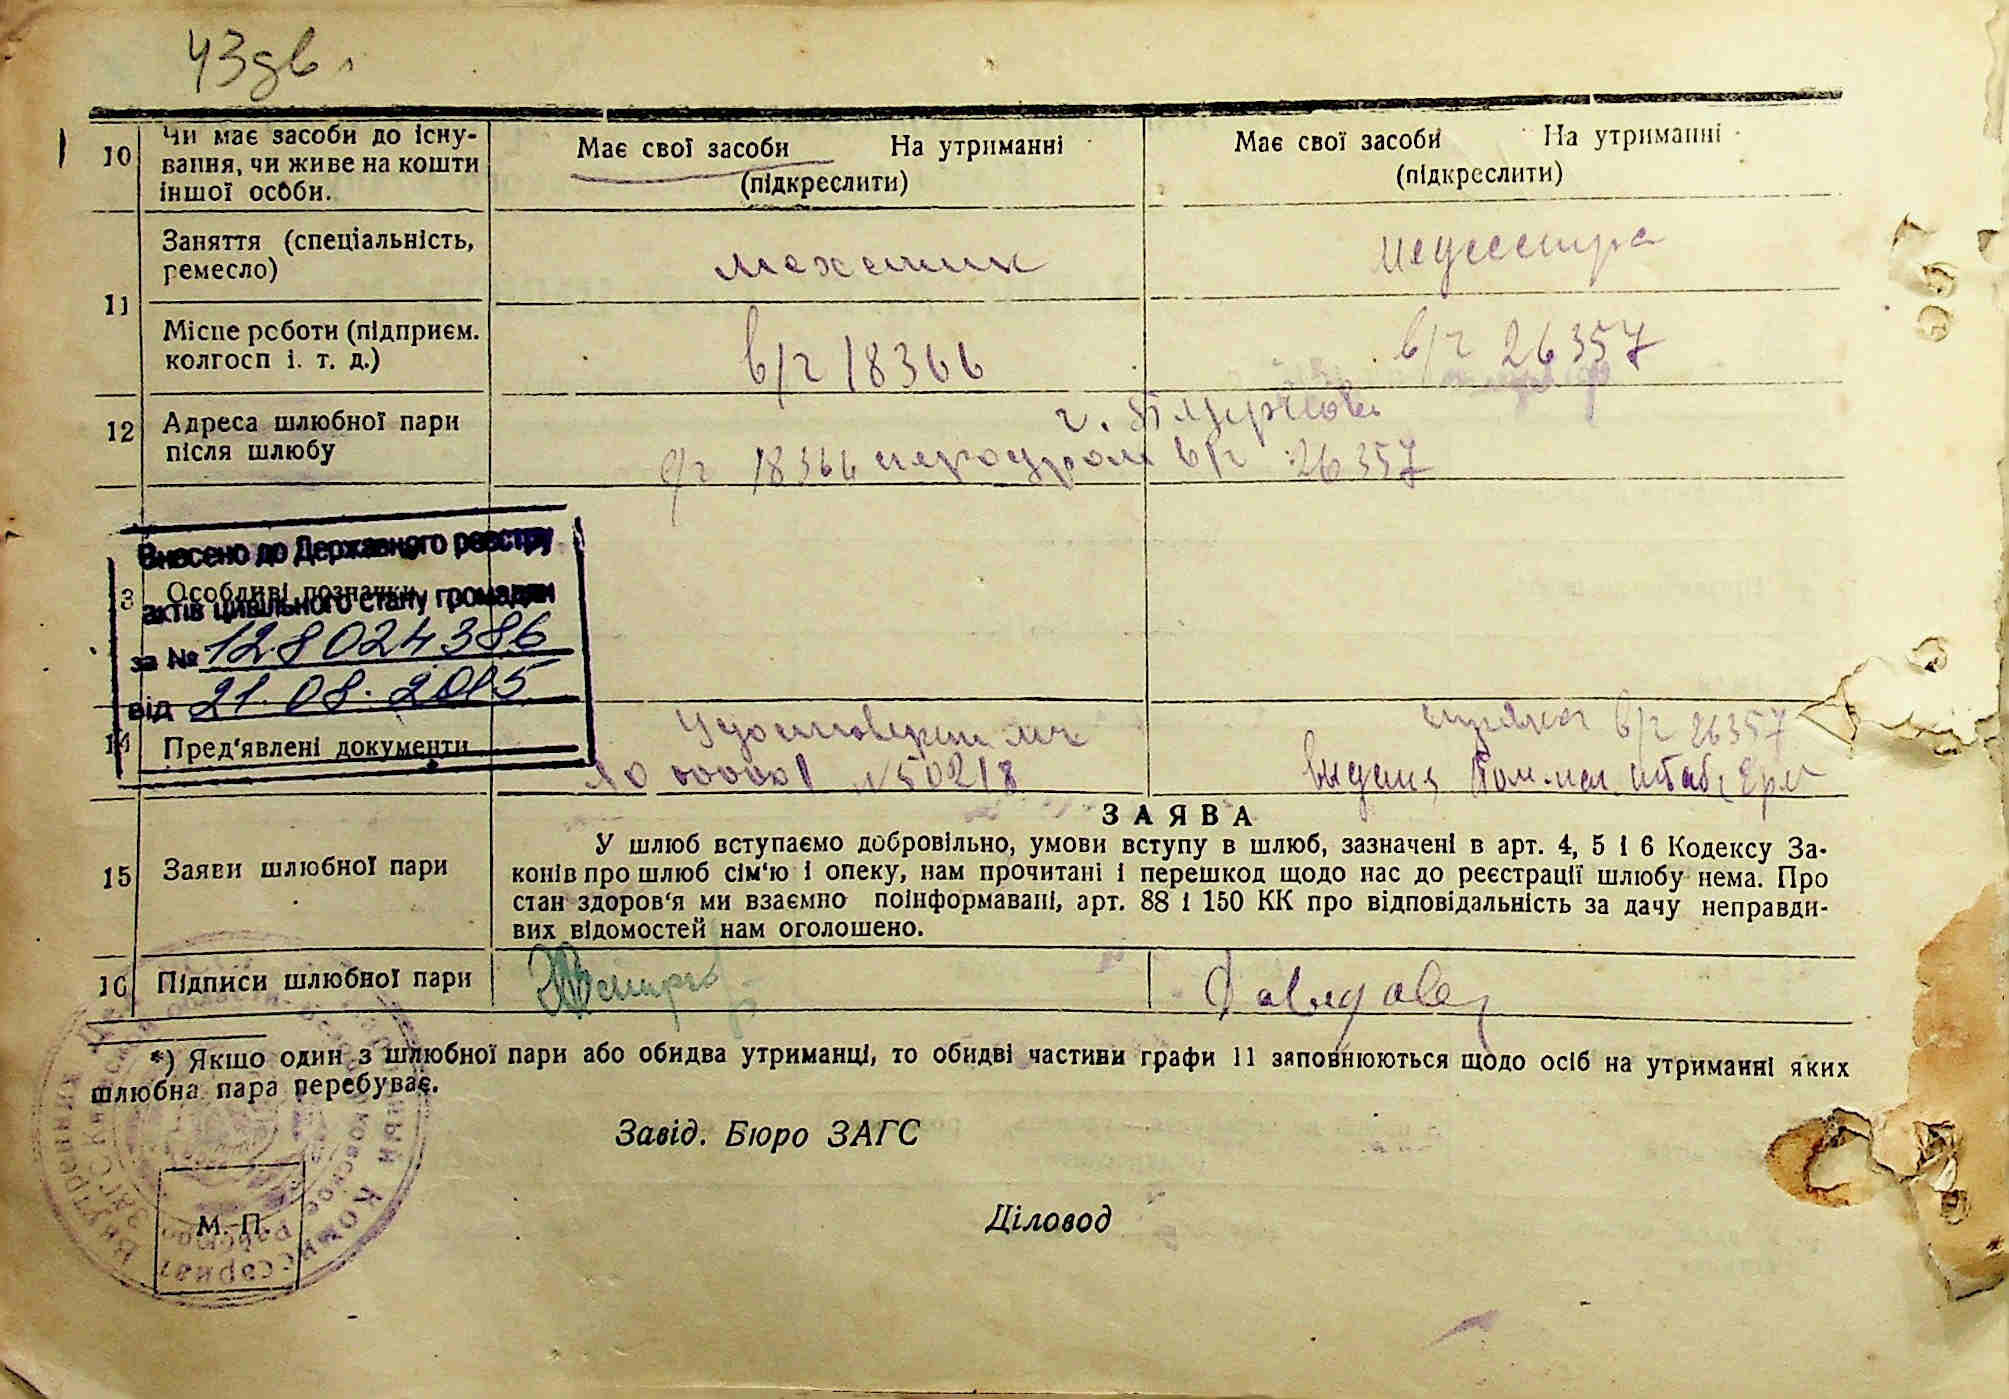 43дв
10 Чи має засоби до існу-
вання, чи живе на кошти
іншої особи.
Має свої засоби На утриманні
(підкреслити)
Має свої засоби На утриманні
(підкреслити)
11 Заняття (спеціальність,
ремесло)
механик
медсестра
Місце роботи (підприєм.
колгосп і. т. д.)
в/ч 18366
в/ч 26357
12 Адреса шлюбної пари
після шлюбу
г.
18366 аэродром в/ч 26357
Внесено до Державного реєстру
актів цивільного стану громадян
за № 128024386
від 21.08.2015
3 Особливі позначки
14 Пред'явлені документи
№ 50218
в/ч 26357
выдана
15 Заяви шлюбної пари
ЗАЯВА
У шлюб вступаємо добровільно, умови вступу в шлюб, зазначені в арт. 4, 5 і 6 Кодексу За-
конів про шлюб сім'ю і опеку, нам прочитані і перешкод щодо нас до реєстрації шлюбу нема. Про
стан здоров'я ми взаємно поінформавані, арт. 88 і 150 КК про відповідальність за дачу неправди-
вих відомостей нам оголошено.
16 Підписи шлюбної пари
*) Якщо один з шлюбної пари або обидва утриманці, то обидві частини графи 11 заповнюються щодо осіб на утриманні яких
шлюбна пара перебуває.
Завід. Бюро ЗАГС
М. П.
Діловод